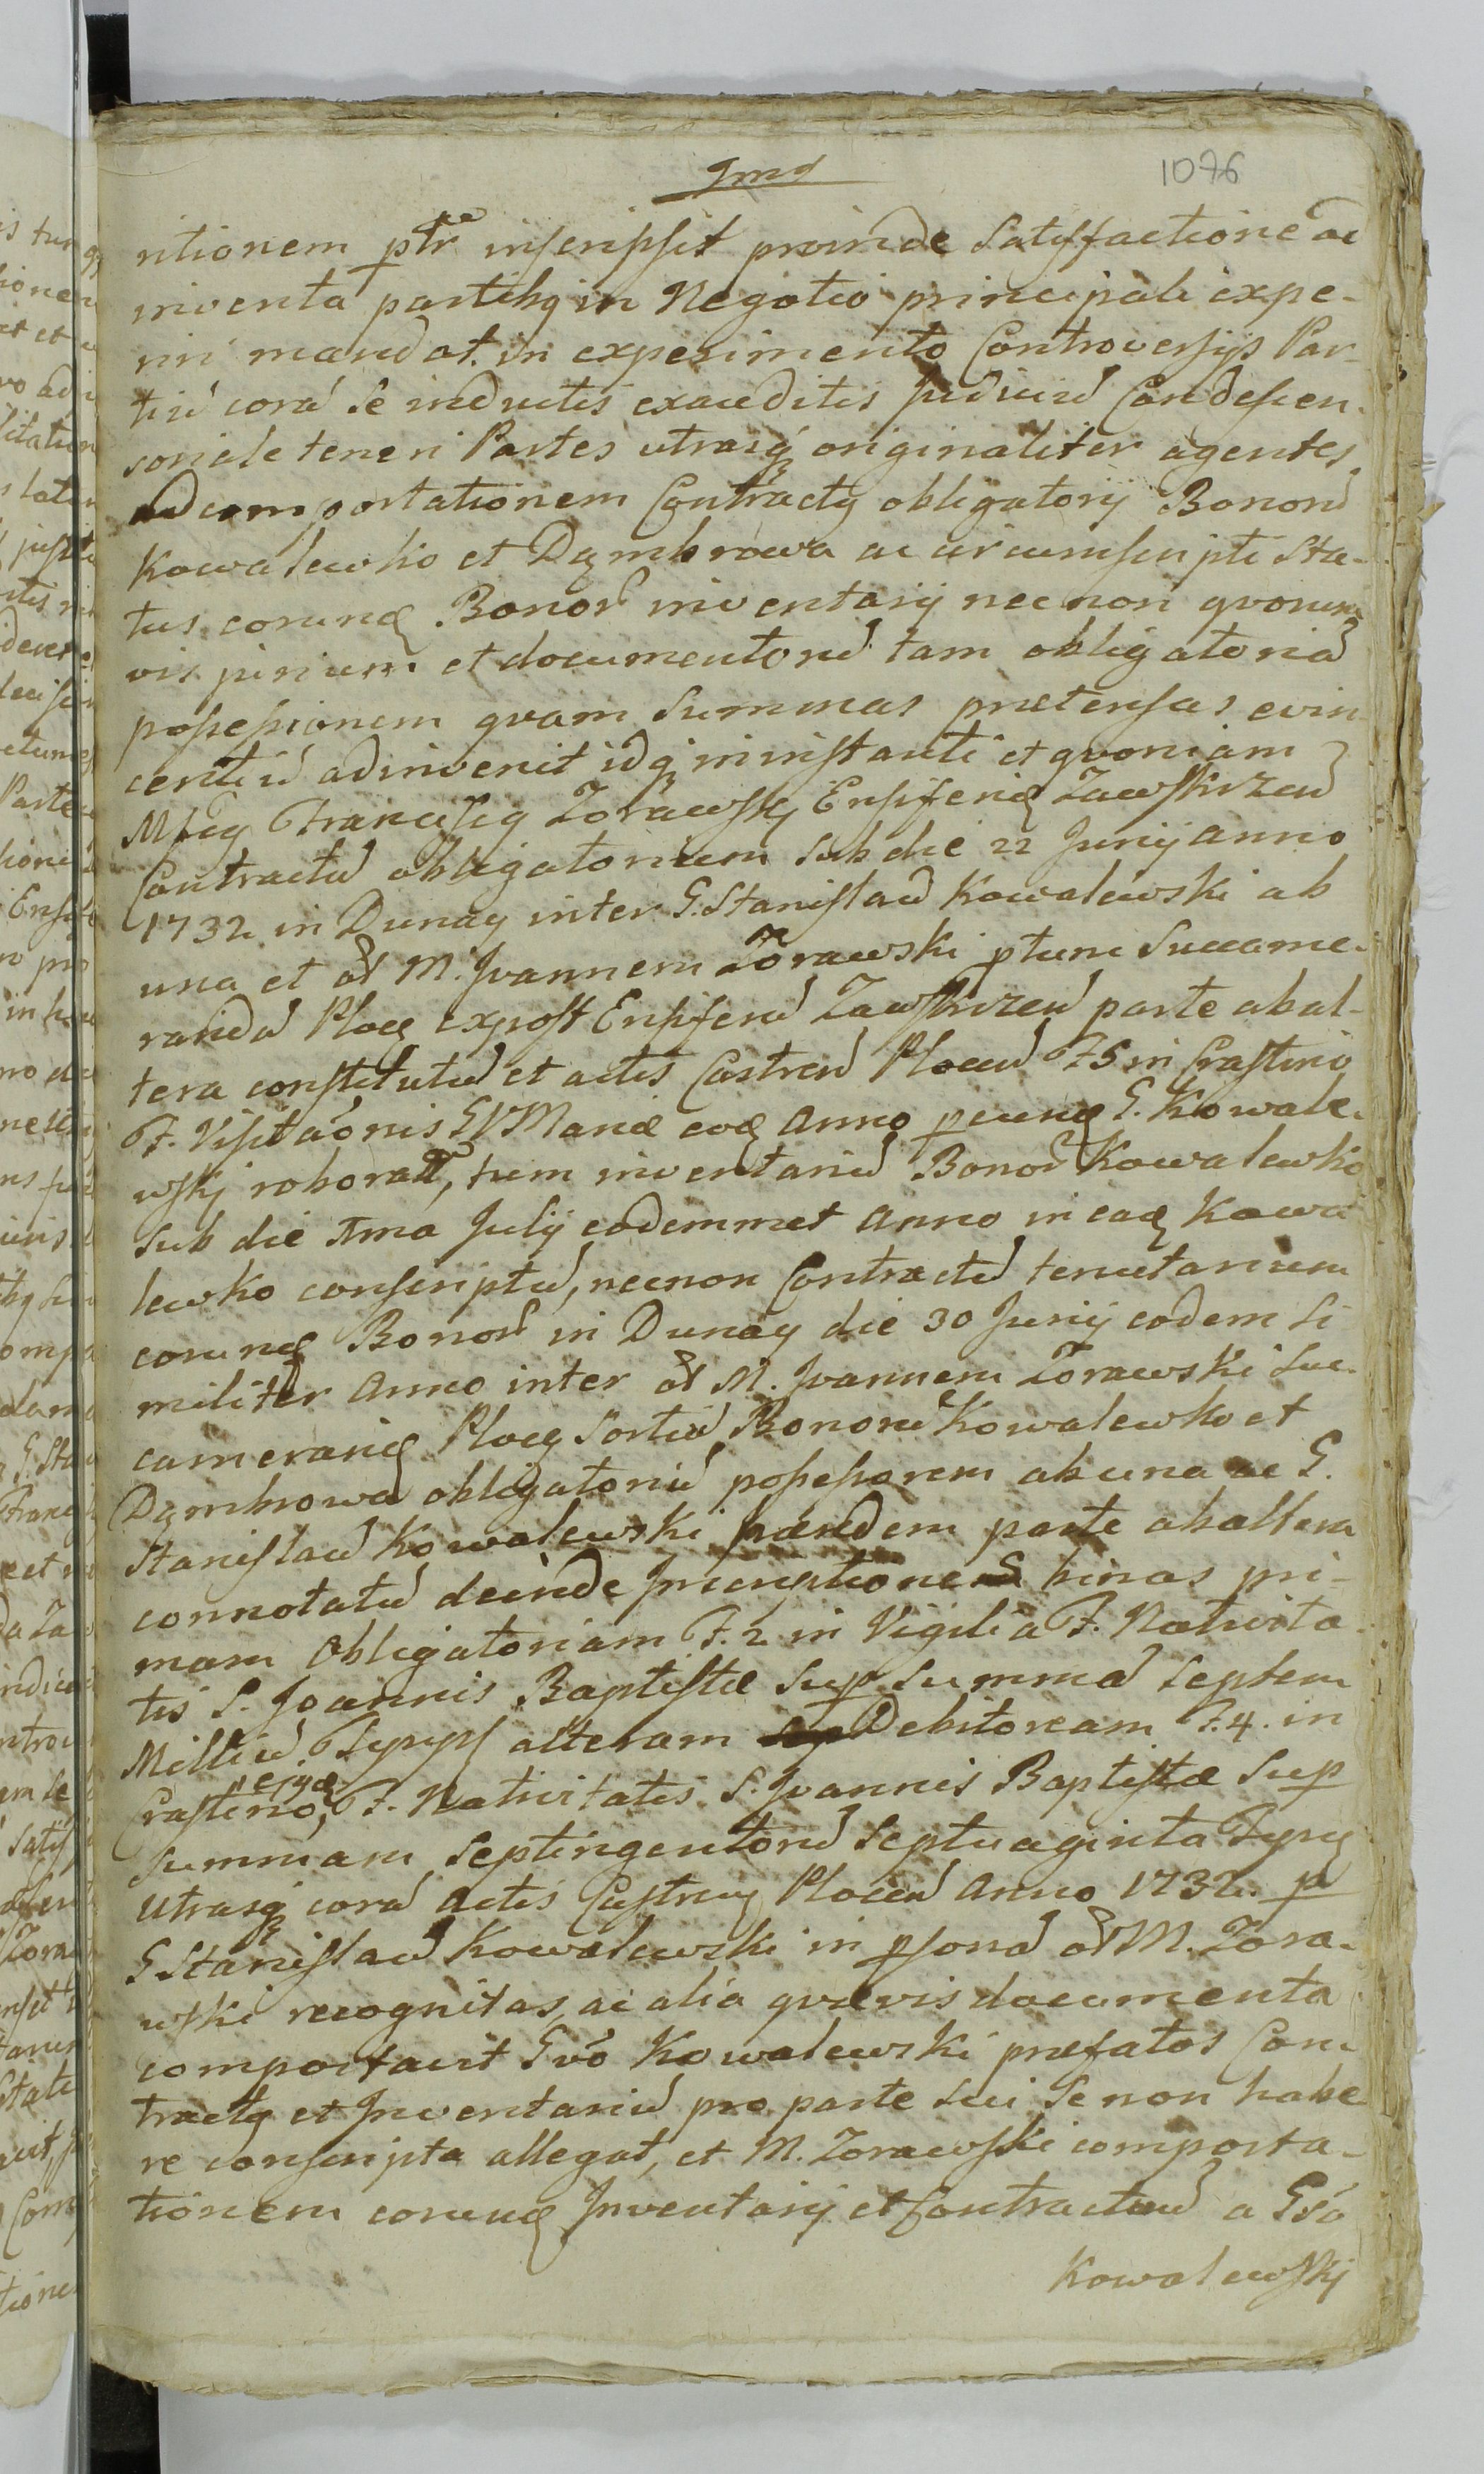 1076
ritionem ptr inscripsit proinde Satisfactione ac
inventa partibq in Negotio principali expe-
riri mandat. in experimento Controversijs Par-
tiu cora se inductis exauditis Judiciu Condescen-
soriale teneri Partes utrasq originaliter agentes
ad comportationem Contractq obligatorij Bonoru
Kowalewko et Dąmbrowa ac circumscripti Sta-
tus eorund Bonor inventarij necnon qvorum
vis jurium et documentoru tam obligatoria
possessionem qvam Summas prætensas evin
centiu adinvenit idq in instanti et qvoniam
Mfcq Franciscq Zorawskj Ensifer Zawskrzen
Contractu obligatorium sub die 22 Junij Anno
1732 in Dunay inter G. Stanislau Kowalewski ab
una et M. Joannem Zorawski ptunc Succame-
rariu Ploc expost Ensiferu Zawskrzen parte abal-
tera constitutu et actis Castren Plocen F5 in Crastino
F. Visitaonis BVMariæ eod Anno G. Kowale-
wskj roborat, tum inventariu Bonor Kowalewko
sub die 1ma Julij eodemmet Anno in ead Kowa
lewko conscriptu, necnon Contractu tenutarium
eorund Bonor in Dunay die 30 Junij eodem Si
militer Anno inter M. Joannem Zorawski Suc-
camerariu Ploc Sortiu Bonoru Kowalewko et
Dąmbrowa obligatoriu possessorem ab una ac G.
Stanislau Kowalewski hæredem parte ab altera
connotatu deinde Inscriptiones binas pri-
mam Obligatoriam F. 2 in Vigilia F. Nativita-
tis S. Joannis Baptistæ Sup Summa Septem
Milliu alteram Debitoream F. 4. in
Crastino, F. Nativitatis S. Joannis Baptistæ Sup
ejqd
Summam Septingentoru Septuaginta
Utrasq cora Actis Castren Plocen Anno 1732. p
G Stanislau Kowalewski in psona M. Zora-
wski recognitas, ac alia qvævis documenta
comportavit Gvo Kowalewski præfatos Con
tractq et Inventariu pro parte sui Se non habe
re conscripta allegat, et M. Zorawski comporta-
tionem eorund Inventarij et Contractuu a Gso
Kowalewskj